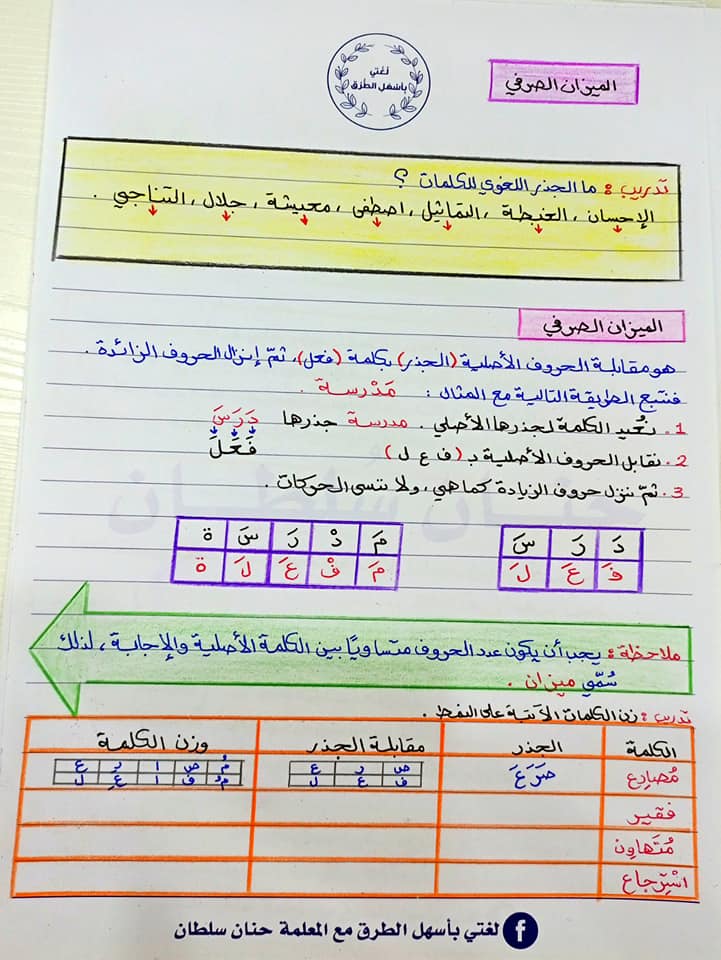 لغتي
بأسهل الطرق
الميزان الصرفي
تدريب : ما الجذر اللغوي للكلمات ؟
الإحسان ، الغبطة ، التماثيل ، اصطفى ، معيشة ، جلال ، التناجي .
الميزان الصرفي
هو مقابلة الحروف الأصلية (الجذر) بكلمة (فعل)، ثمّ إنزال الحروف الزائدة .
فنتبع الطريقة التالية مع المثال : مَدْرسة .
1. نُعيد الكلمة لجذرها الأصلي . مدرسة جذرها دَرَسَ
2. نقابل الحروف الأصلية بـ (ف ع ل) فَعَلَ
3. ثمّ ننزل حروف الزيادة كما هي ، ولا ننسى الحركات .
حنان سُلطان
دَ رَ سَ مَ دْ رَ سَ ة
فَ عَ لَ مَ فْ عَ لَ ة
ملاحظة : يجب أن يكون عدد الحروف متساويًا بين الكلمة الأصلية والإجابة ، لذلك
سُمّي ميزان .
تدريب : زن الكلمات الآتية على النمط .
الكلمة الجذر مقابلة الجذر وزن الكلمة
مُصارِع صَرَعَ ص ر ع مُ ص ا رِ ع
ف ع ل مُ ف ا عِ ل
فقير
مُتَهاوِن
اسْتِرجاع
لغتي بأسهل الطرق مع المعلمة حنان سلطان